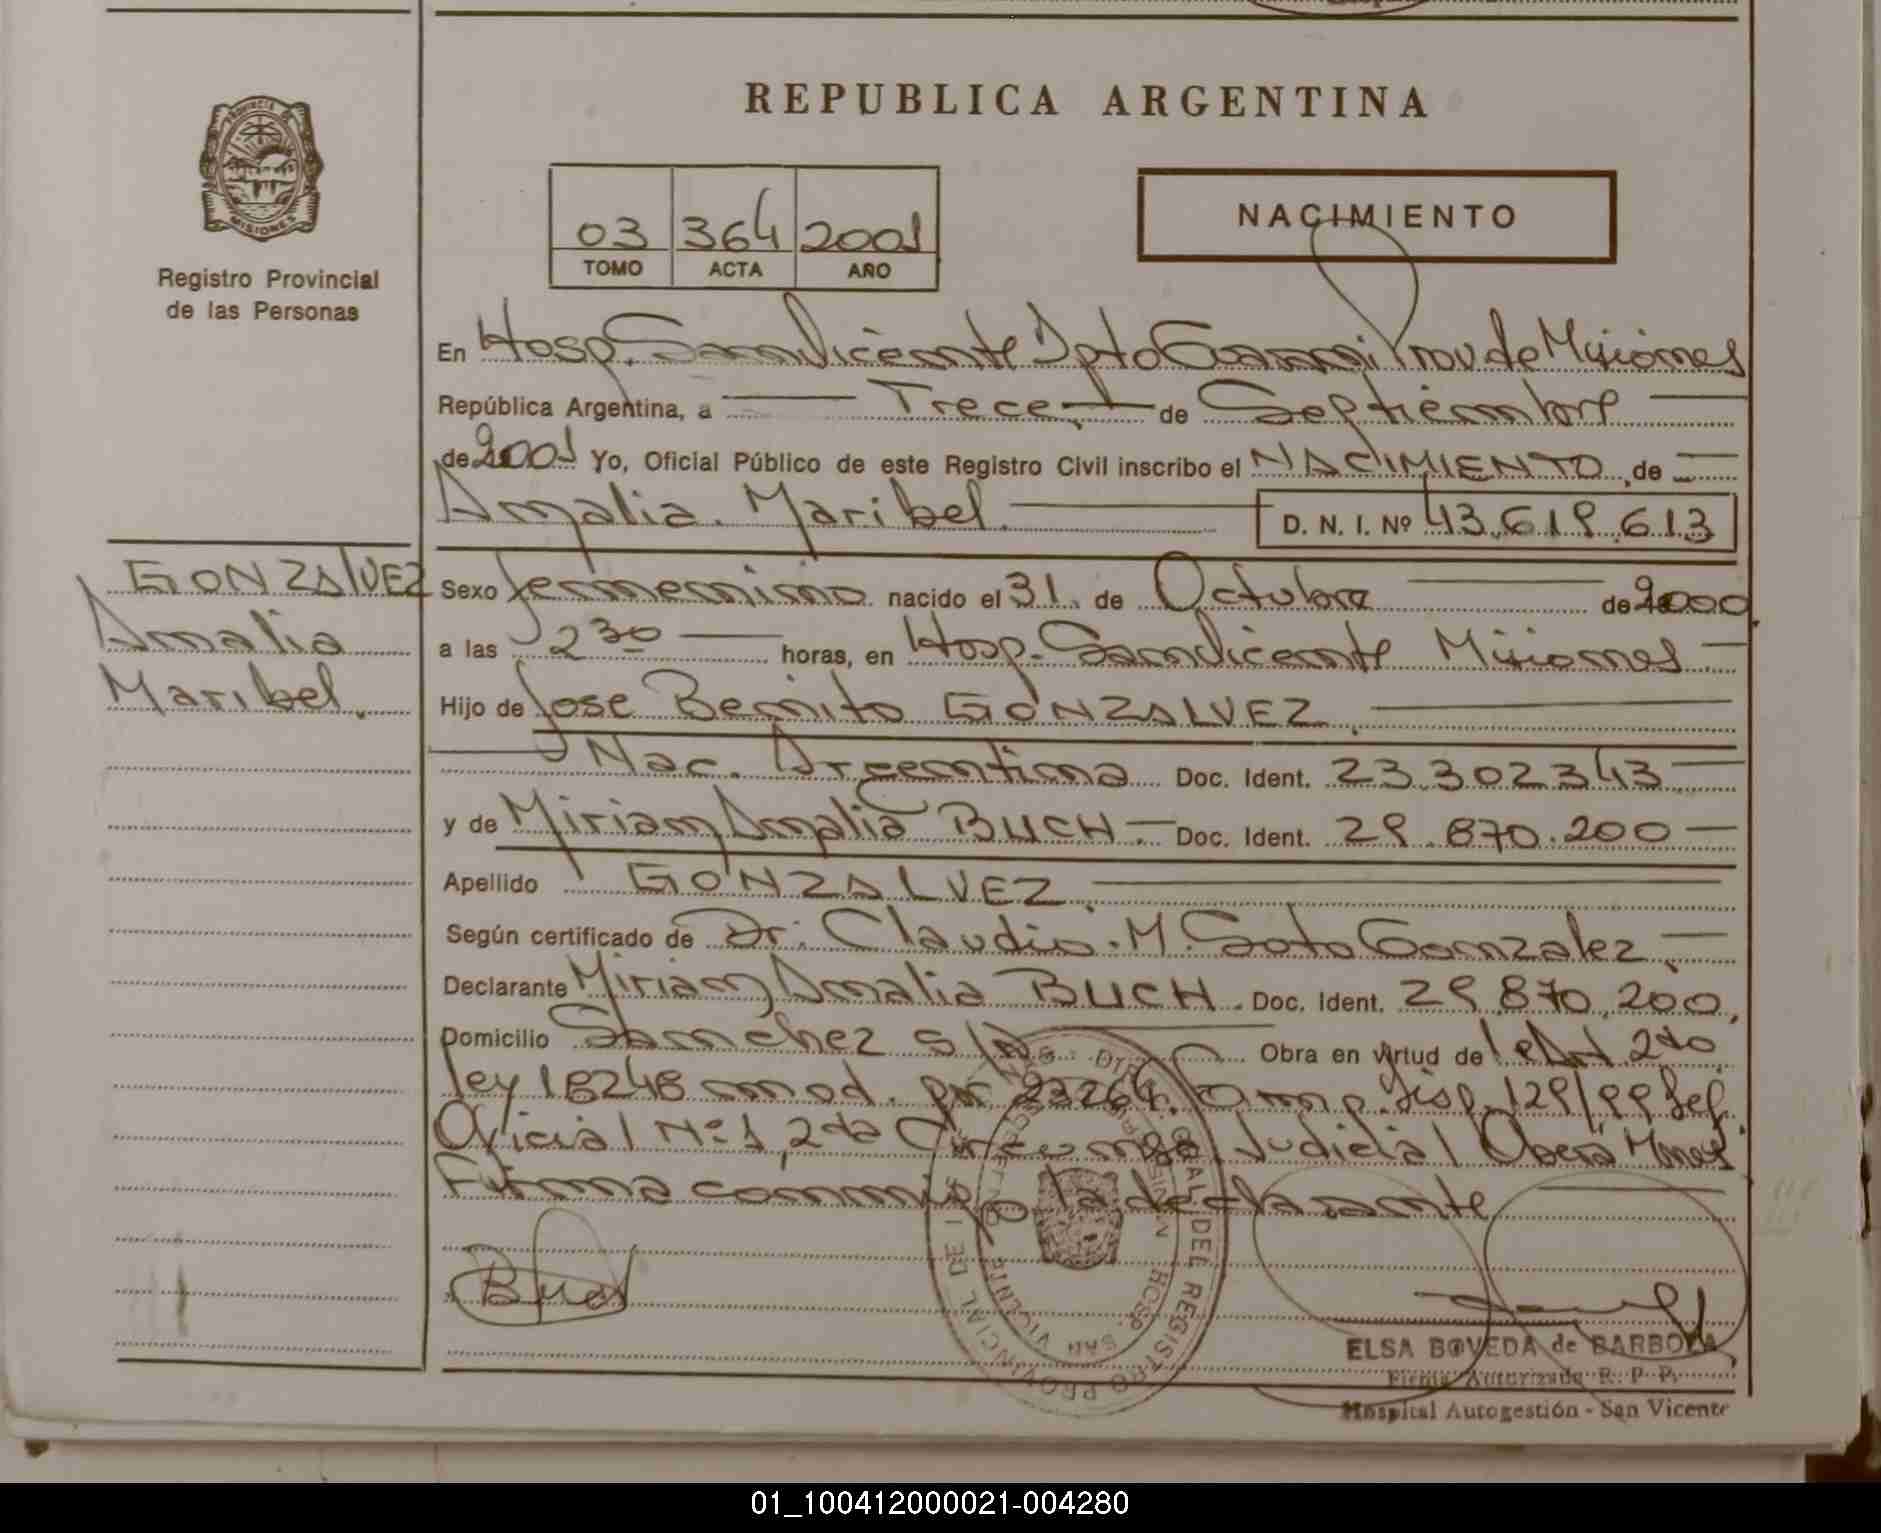 REPUBLICA ARGENTINA
PROVINCIA DE MISIONES
Registro Provincial
de las Personas
NACIMIENTO
03 364 2001
TOMO ACTA AÑO
En Hosp. San Vicente Dpto Guarani Prov de Misiones
República Argentina, a Trece de Septiembre
de 2001 Yo, Oficial Público de este Registro Civil inscribo el NACIMIENTO de
Amalia Maribel D. N. I. Nº 43.619.613
GONZALVEZ
Amalia
Maribel.
Sexo femenino nacido el 31 de Octubre de 2000
a las 2 30 horas, en Hosp. San Vicente Misiones
Hijo de Jose Benito GONZALVEZ
Nac. Argentina Doc. Ident. 23.302.343
y de Miriam Amalia BUCH Doc. Ident. 29.870.200
Apellido GONZALVEZ
Según certificado de Dr. Claudio M. Soto Gonzalez
Declarante Miriam Amalia BUCH. Doc. Ident. 29.870.200
Domicilio Sanchez s/n Obra en virtud de 2do
ley 18248 mod. por 23264. Disp. 129/99 Def.
Oficial Nº 1, 2da Judicial Oberá Mnes
Firma conmigo la declarante
Buch
DIRECCION GENERAL DEL REGISTRO PROVINCIAL DE LAS PERSONAS
HOSP. SAN VICENTE
ELSA BOVEDA de BARBOZA
Firma Autorizada R. P. P.
Hospital Autogestión - San Vicente
01_100412000021-004280